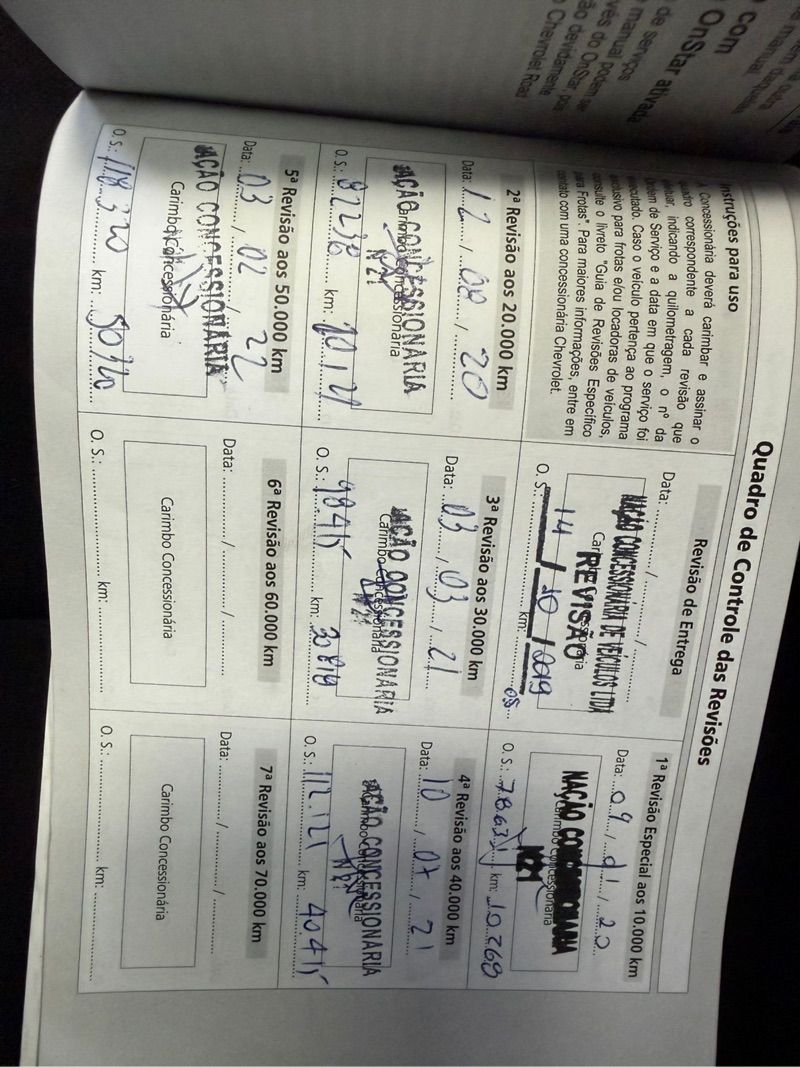 com
OnStar ativada
de serviços
manual podem ser
vés do OnStar, por
ão devidamente
Chevrolet Road
Quadro de Controle das Revisões
Instruções para uso
A Concessionária deverá carimbar e assinar o
quadro correspondente a cada revisão que
efetuar, indicando a quilometragem, o nº da
Ordem de Serviço e a data em que o serviço foi
executado. Caso o veículo pertença ao programa
exclusivo para frotas e/ou locadoras de veículos,
consulte o livreto "Guia de Revisões Específico
para Frotas". Para maiores informações, entre em
contato com uma concessionária Chevrolet.
Revisão de Entrega
Data: ............/............/............
NAÇÃO CONCESSIONÁRIA DE VEÍCULOS LTDA
REVISÃO
14/10/2019
O. S.: ............ km: ............
1ª Revisão Especial aos 10.000 km
Data: 09/01/20
NAÇÃO CONCESSIONARIA
Carimbo Concessionária
N21
O. S.: km: 10760
2ª Revisão aos 20.000 km
Data: 12/08/20
AÇÃO CONCESSIONARIA
Carimbo Concessionária
N21
O. S.: km:
3ª Revisão aos 30.000 km
Data: 03/03/21
AÇÃO CONCESSIONARIA
Carimbo Concessionária
N21
O. S.: 98415 km:
4ª Revisão aos 40.000 km
Data: 10/07/21
AÇÃO CONCESSIONARIA
Carimbo Concessionária
N21
O. S.: 112.121 km: 40415
5ª Revisão aos 50.000 km
Data: 03/02/22
AÇÃO CONCESSIONÁRIA
Carimbo Concessionária
O. S.: 118320 km: 50720
6ª Revisão aos 60.000 km
Data: ............/............/............
Carimbo Concessionária
O. S.: ............ km: ............
7ª Revisão aos 70.000 km
Data: ............/............/............
Carimbo Concessionária
O. S.: ............ km: ............